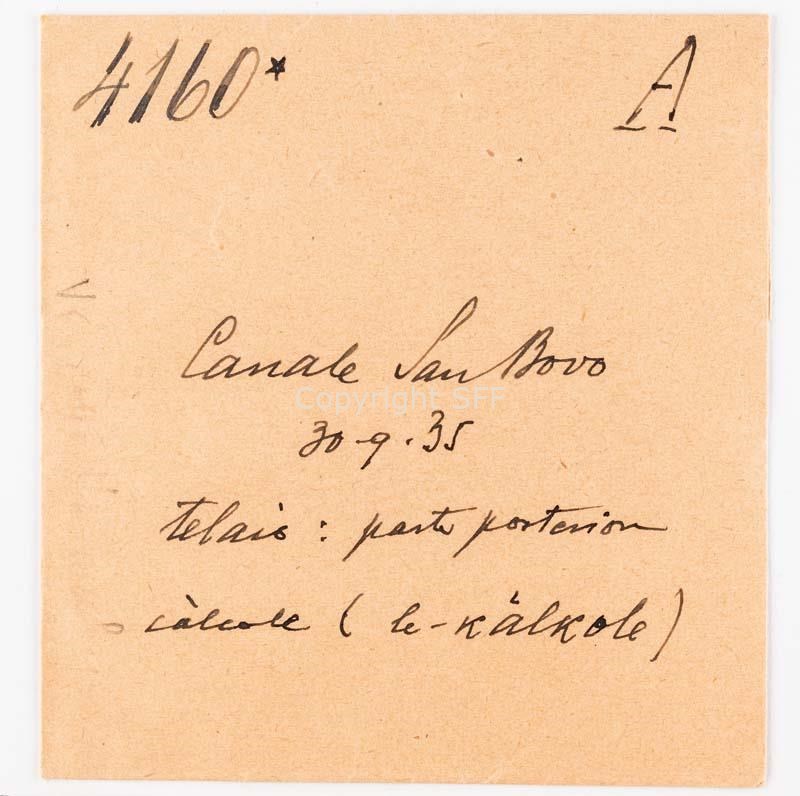 4160* A
Canale San Bovo
Copyright SFF
30-9.35
telaio: parte posteriore
càlcole (le-kàlkole)